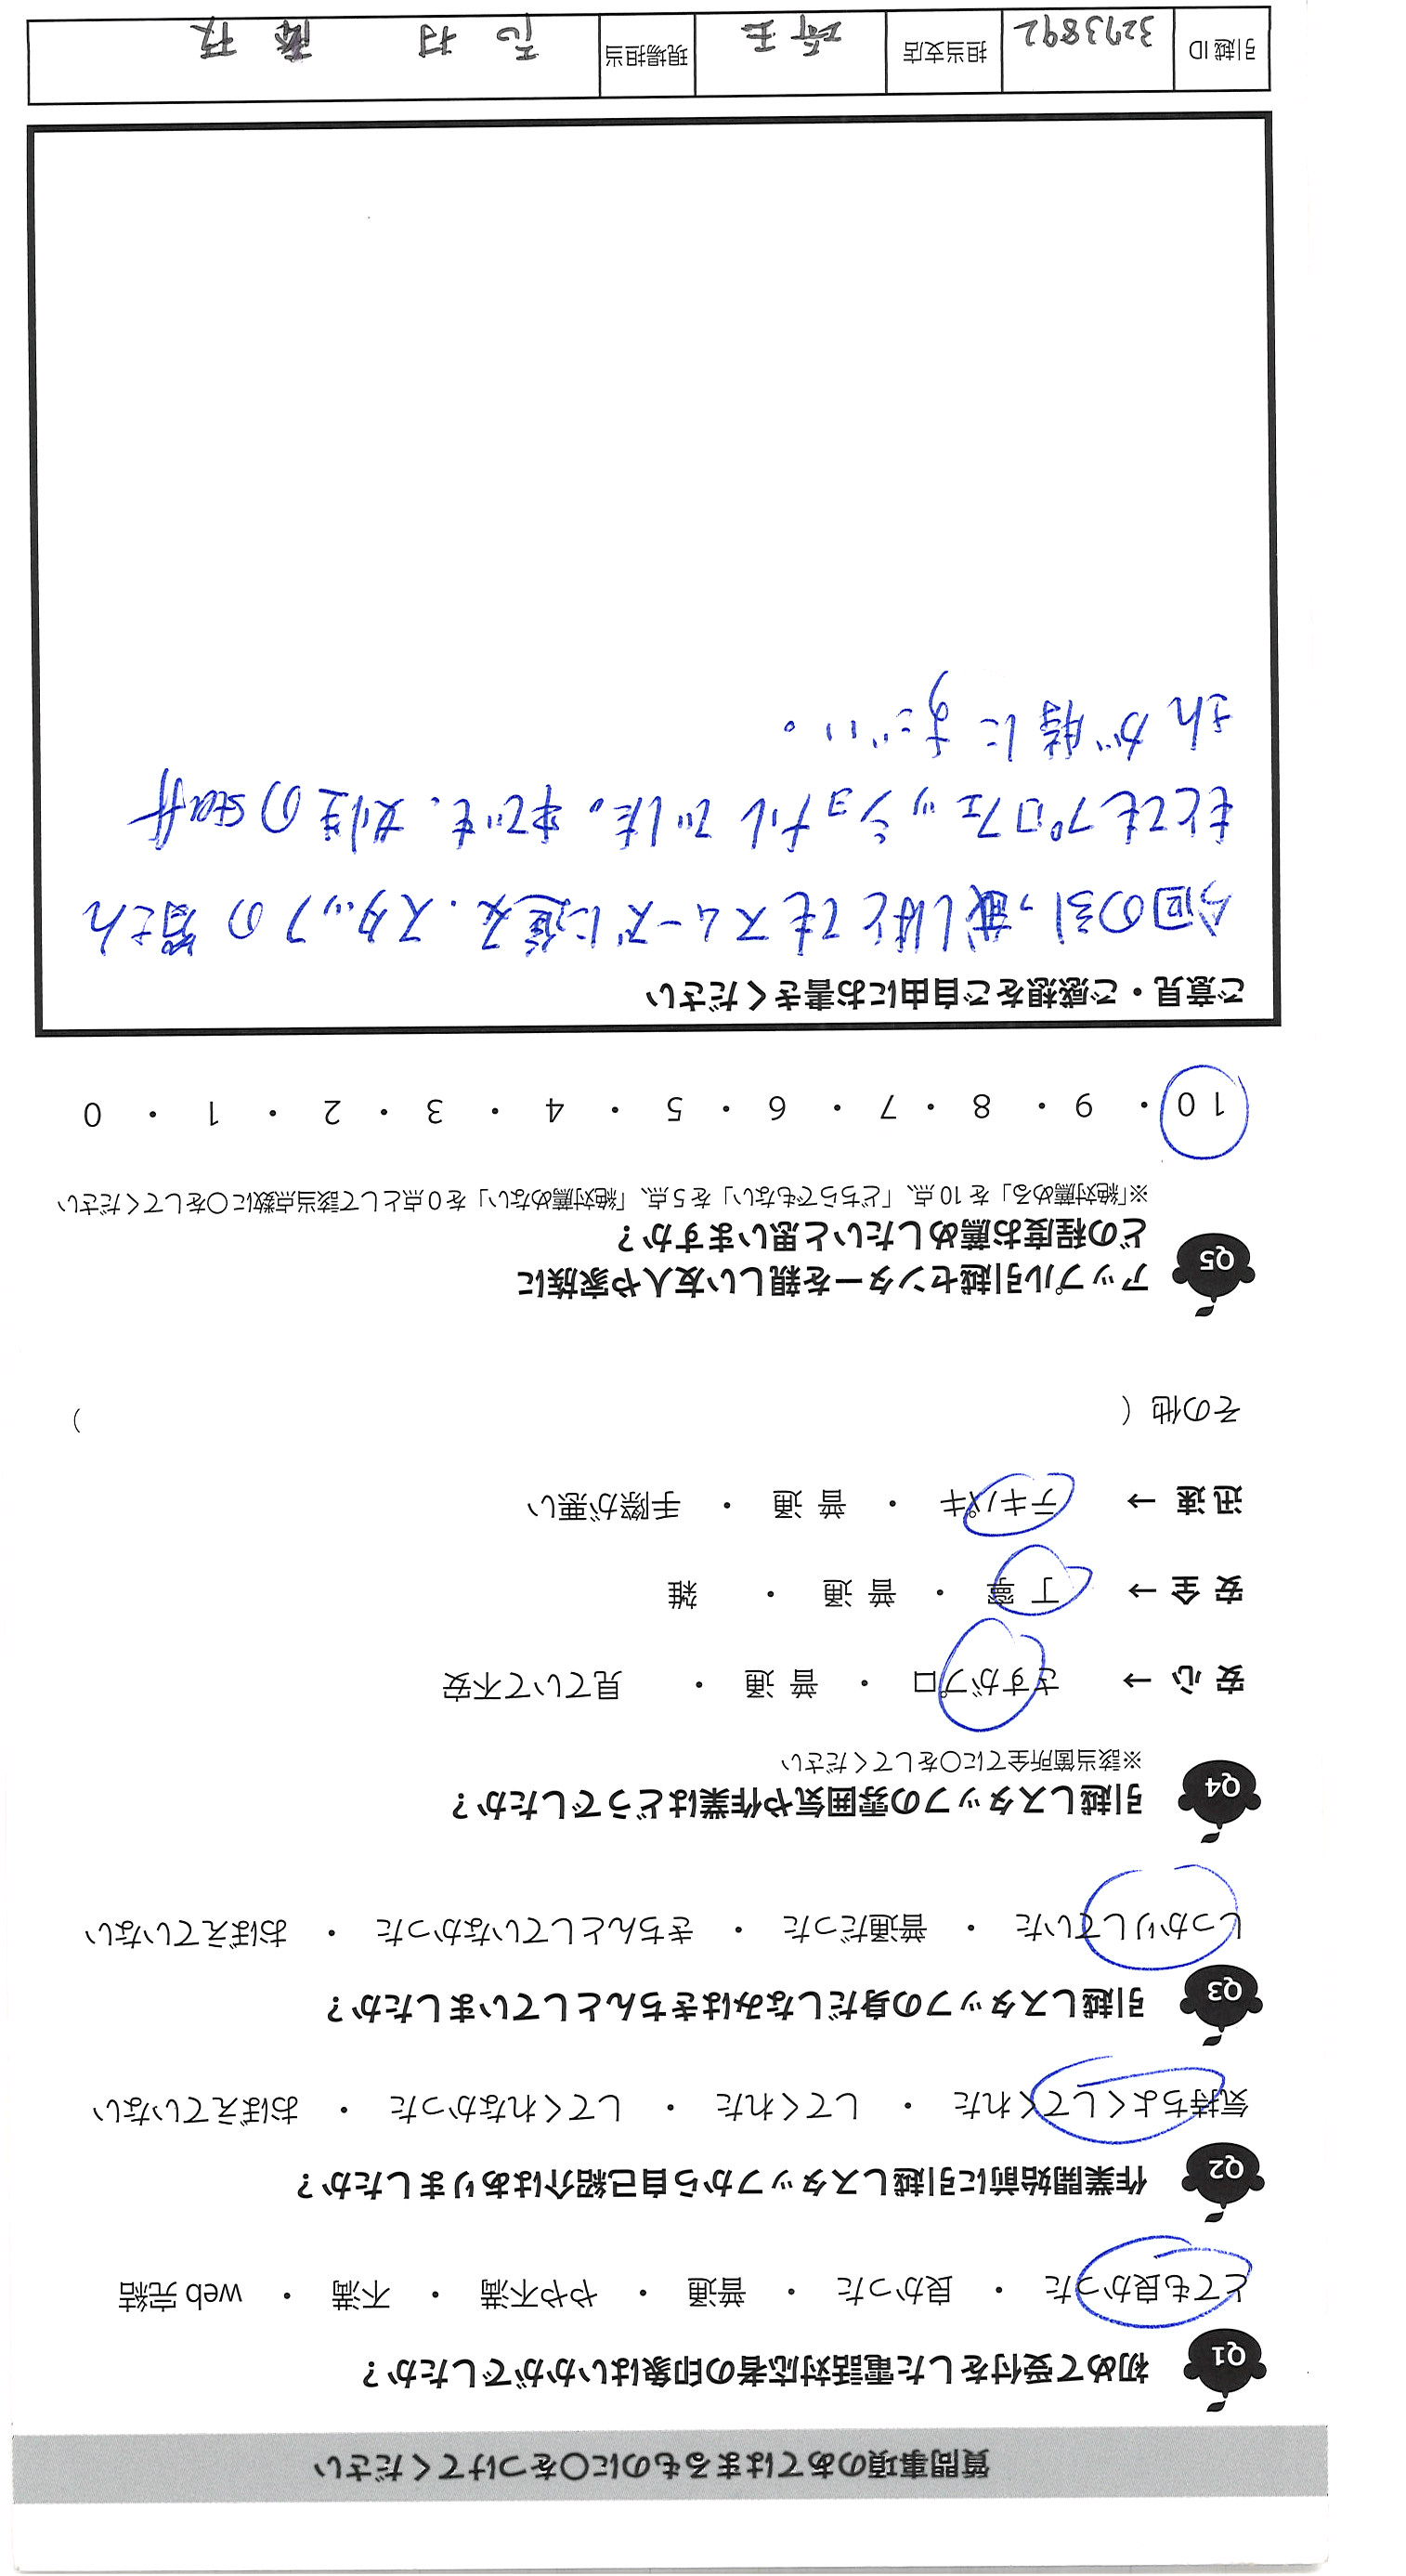 質問事項のあてはまるものに○をつけてください
Q1 初めて受付をした電話対応者の印象はいかがでしたか？
とても良かった ・ 良かった ・ 普通 ・ やや不満 ・ 不満 ・ web完結
Q2 作業開始前に引越しスタッフから自己紹介はありましたか？
気持ちよくしてくれた ・ してくれた ・ してくれなかった ・ おぼえていない
Q3 引越しスタッフの身だしなみはきちんとしていましたか？
しっかりしていた ・ 普通だった ・ きちんとしていなかった ・ おぼえていない
Q4 引越しスタッフの雰囲気や作業はどうでしたか？
※該当箇所全てに○をしてください
安心 → さすがプロ ・ 普通 ・ 見ていて不安
安全 → 丁寧 ・ 普通 ・ 雑
迅速 → テキパキ ・ 普通 ・ 手際が悪い
その他（ ）
Q5 アップル引越センターを親しい友人や家族に
どの程度お薦めしたいと思いますか？
※「絶対薦める」を10点、「どちらでもない」を5点、「絶対薦めない」を0点として該当点数に○をしてください
10 ・ 9 ・ 8 ・ 7 ・ 6 ・ 5 ・ 4 ・ 3 ・ 2 ・ 1 ・ 0
ご意見・ご感想をご自由にお書きください
今回の引っ越しはとてもスムーズに進え、スタッフの皆さん
もとてもプロフェッショナルでした。中でも、女性のstaff
さんが特にすごい。
引越ID 3273892 担当支店 埼玉 現場担当 村 藤